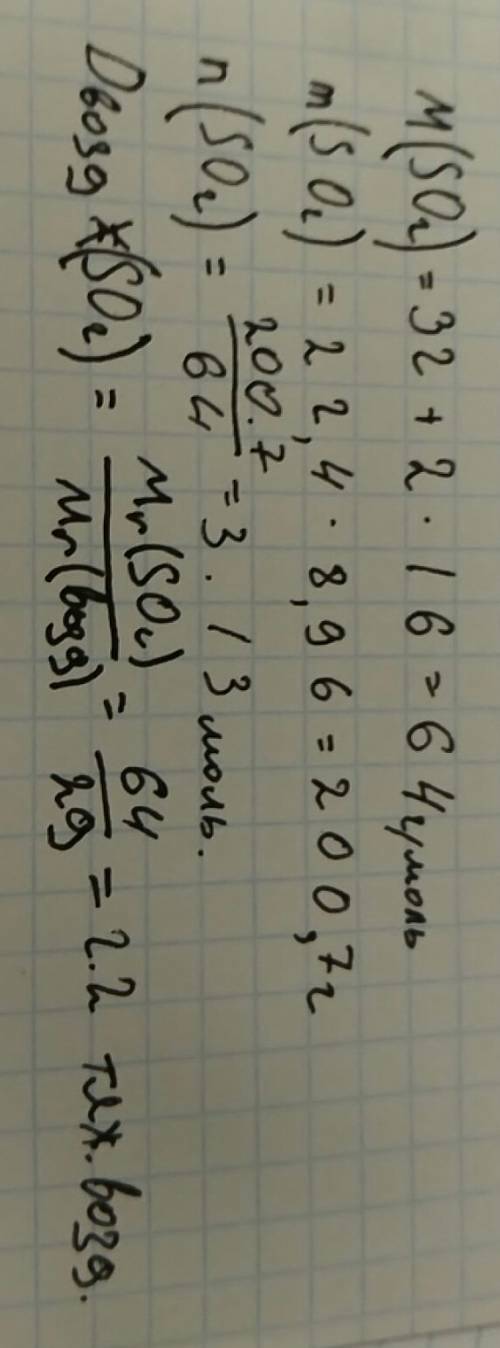 M(SO₂) = 32 + 2 · 16 = 64 г/моль
m(SO₂) = 22,4 · 8,96 = 200,7г
n(SO₂) = 200.7/64 = 3.13 моль.
Dвозд (SO₂) = Mr(SO₂)/Mr(возд) = 64/29 = 2.2 тяж. возд.